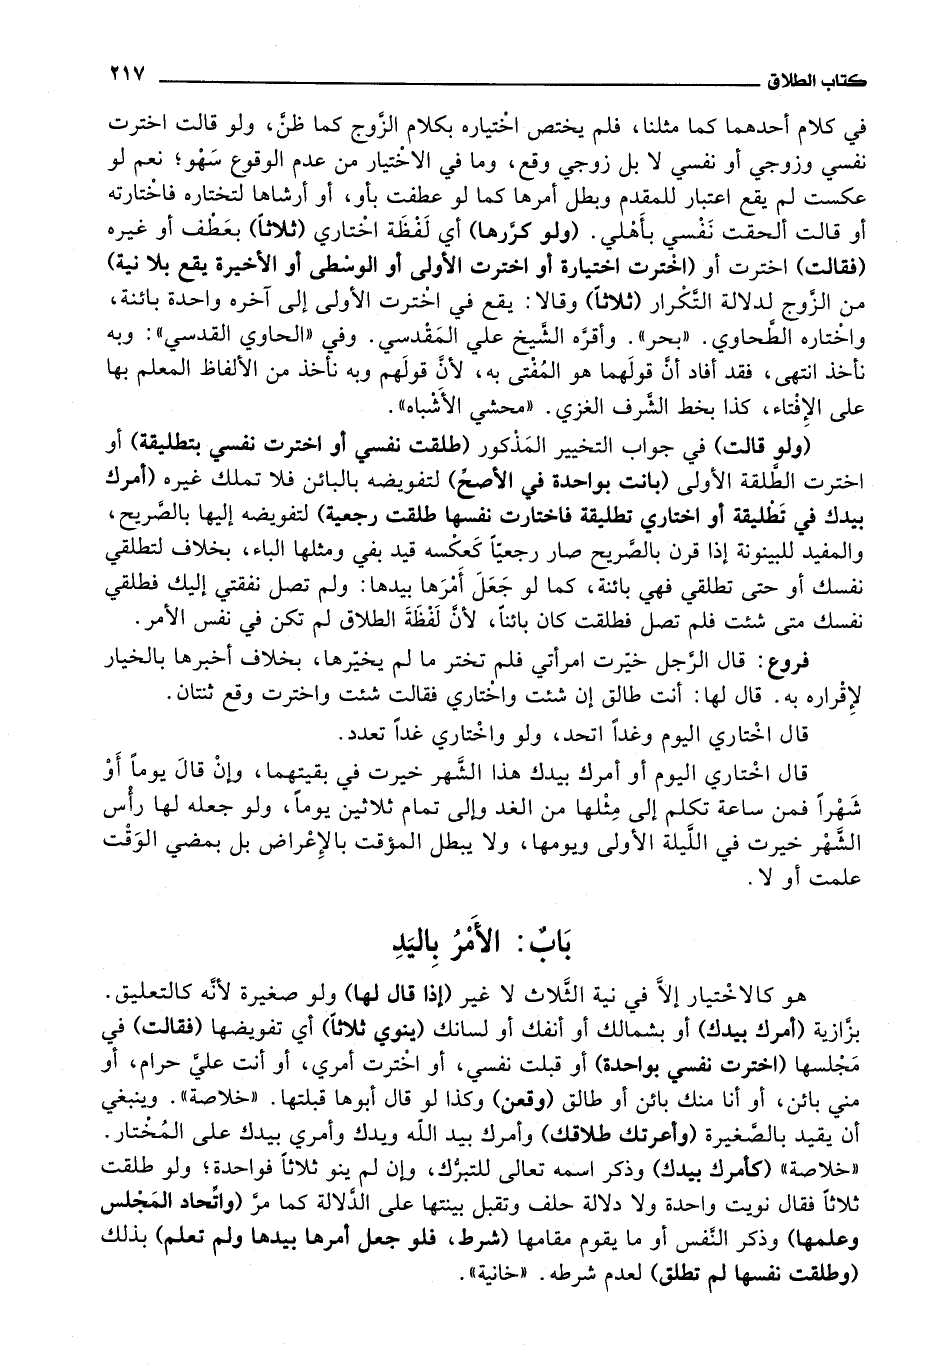 كتاب الطلاق ٢١٧
في كلام أحدهما كما مثلنا، فلم يختص اخْتياره بكلام الزَّوج كما ظنَّ، ولو قالت اخترت
نفسي وزوجي أو نفسي لا بل زوجي وقع، وما في الاخْتيار من عدم الوقوع سَهْو؛ نعم لو
عكست لم يقع اعتبار للمقدم وبطل أمرها كما لو عطفت بأو، أو أرشاها لتختاره فاخْتارته
أو قالت ألحقت نَفْسي بأَهْلي. (ولو كرَّرها) أي لَفْظَة اختاري (ثلاثاً) بعَطْف أو غيره
(فقالت) اخترت أو (اخْترت اختيارة أو اخترت الأولى أو الوسْطى أو الأخيرة يقع بلا نية)
من الزَّوج لدلالة التَّكْرار (ثلاثاً) وقالا: يقع في اخْترت الأولى إلى آخره واحدة بائنة،
واخْتاره الطَّحاوي. «بحر». وأقرَّه الشَّيخ علي المَقْدسي. وفي «الحاوي القدسي»: وبه
نأخذ انتهى، فقد أفاد أنَّ قولَهما هو المُفْتى به، لأنَّ قولَهم وبه نأخذ من الألفاظ المعلم بها
على الإِفْتاء، كذا بخط الشَّرف الغزي. «محشي الأَشْباه».
(ولو قالت) في جواب التخيير المَذْكور (طلقت نفسي أو اخترت نفسي بتطليقة) أو
اخترت الطَّلقة الأولى (بانت بواحدة في الأصحِّ) لتفويضه بالبائن فلا تملك غيره (أمرك
بيدك في تَطْليقة أو اختاري تطليقة فاختارت نفسها طلقت رجعية) لتفويضه إليها بالصَّريح،
والمفيد للبينونة إذا قرن بالصَّريح صار رجعيّاً كَعكْسه قيد بفي ومثلها الباء، بخلاف لتطلقي
نفسك أو حتى تطلقي فهي بائنة، كما لو جَعَلَ أَمْرَها بيدها: ولم تصل نفقتي إليك فطلقي
نفسك متى شئت فلم تصل فطلقت كان بائناً، لأنَّ لَفْظَةَ الطلاق لم تكن في نفس الأمر.
فروع: قال الرَّجل خيّرت امرأتي فلم تختر ما لم يخيّرها، بخلاف أخبرها بالخيار
لإِقْراره به. قال لها: أنت طالق إن شئت واخْتاري فقالت شئت واخترت وقع ثنتان.
قال اخْتاري اليوم وغداً اتحد، ولو واخْتاري غداً تعدد.
قال اختاري اليوم أو أمرك بيدك هذا الشَّهر خيرت في بقيتهما، وإنْ قالَ يوماً أَوْ
شَهْراً فمن ساعة تكلم إلى مِثْلها من الغد وإلى تمام ثلاثين يوماً، ولو جعله لها رأْس
الشَّهْر خيرت في اللَّيلة الأولى ويومها، ولا يبطل المؤقت بالإِعْراض بل بمضي الوَقْت
علمت أو لا.
بَابٌ: الأَمْرُ بِاليَدِ
هو كالاخْتيار إلاَّ في نية الثَّلاث لا غير (إذا قال لها) ولو صغيرة لأنَّه كالتعليق.
بزَّازية (أمرك بيدك) أو بشمالك أو أنفك أو لسانك (ينوي ثلاثاً) أي تفويضها (فقالت) في
مَجْلسها (اخترت نفسي بواحدة) أو قبلت نفسي، أو اخْترت أمري، أو أنت عليَّ حرام، أو
مني بائن، أو أنا منك بائن أو طالق (وقعن) وكذا لو قال أبوها قبلتها. «خلاصة». وينبغي
أن يقيد بالصَّغيرة (وأعرتك طلاقك) وأمرك بيد الله ويدك وأمري بيدك على المُخْتار.
«خلاصة» (كأمرك بيدك) وذكر اسمه تعالى للتبرُّك، وإن لم ينو ثلاثاً فواحدة؛ ولو طلقت
ثلاثاً فقال نويت واحدة ولا دلالة حلف وتقبل بينتها على الدَّلالة كما مرَّ (واتِّحاد المَجْلس
وعلمها) وذكر النَّفس أو ما يقوم مقامها (شرط، فلو جعل أمرها بيدها ولم تعلم) بذلك
(وطلقت نفسها لم تطلق) لعدم شرطه. «خانية».